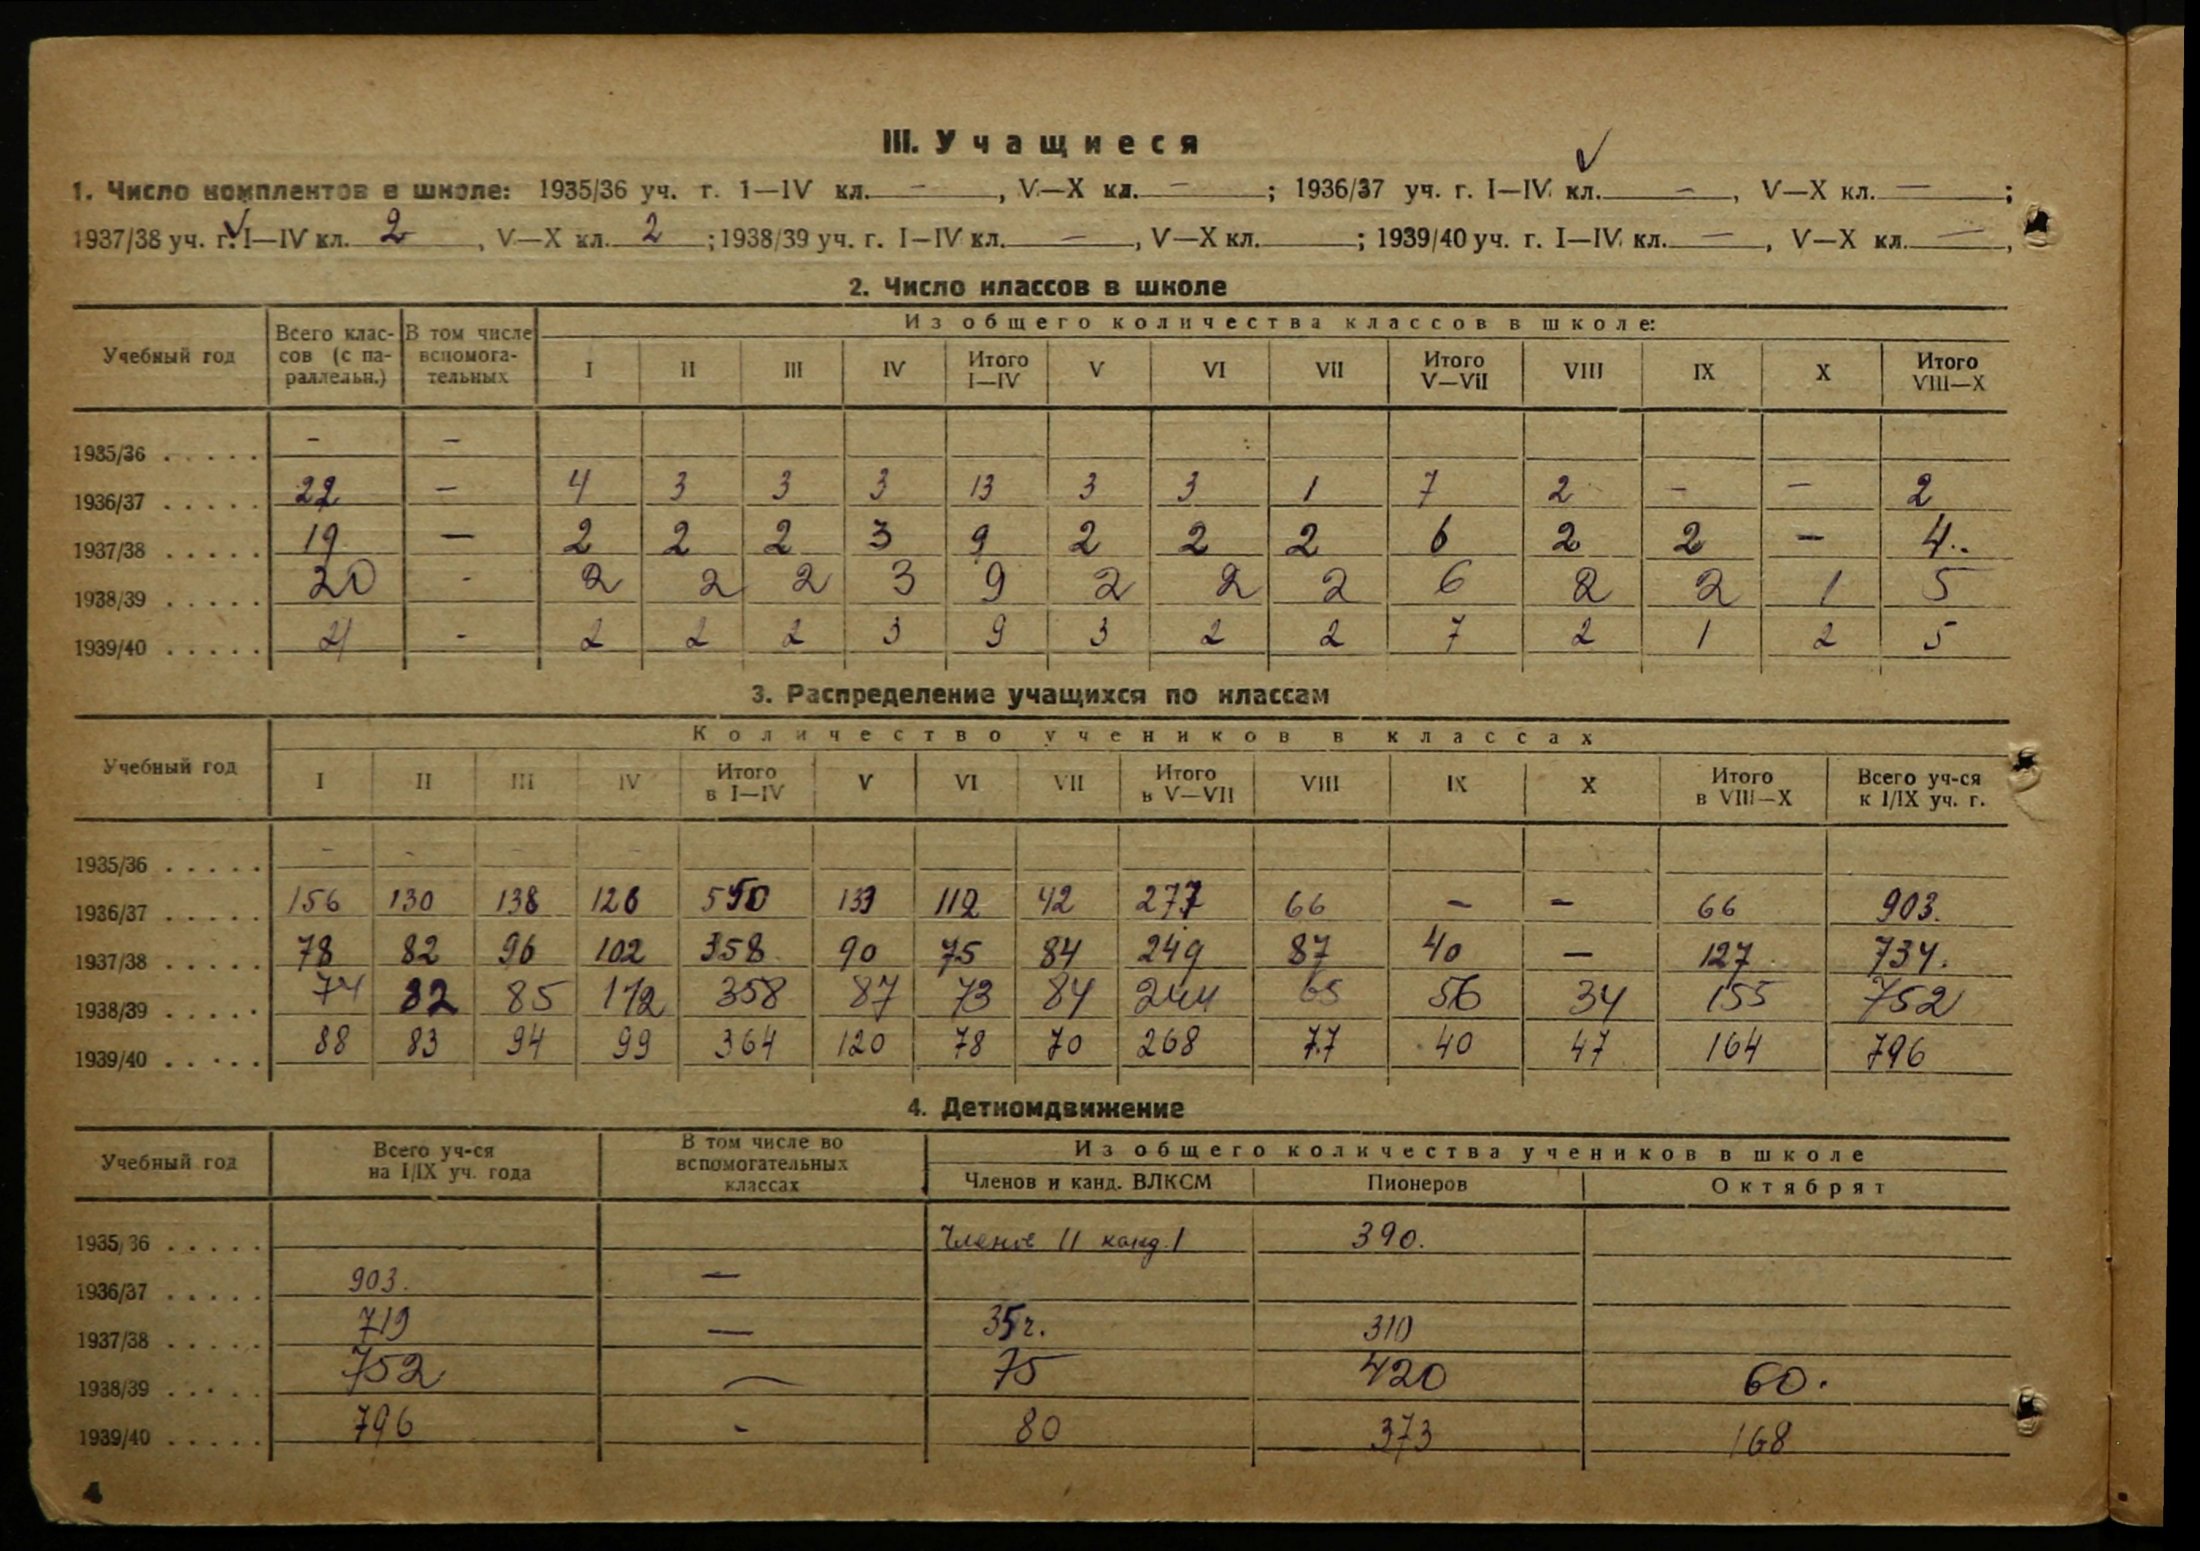 III. Учащиеся
1. Число комплектов в школе: 1935/36 уч. г. I—IV кл. — , V—X кл. — ; 1936/37 уч. г. I—IV кл. — , V—X кл. — ;
1937/38 уч. г. I—IV кл. 2 , V—X кл. 2 ; 1938/39 уч. г. I—IV кл. — , V—X кл. ; 1939/40 уч. г. I—IV кл. — , V—X кл. — ,
2. Число классов в школе
Учебный год Всего классов (с параллельн.) В том числе вспомогательных Из общего количества классов в школе:
I II III IV Итого I—IV V VI VII Итого V—VII VIII IX X Итого VIII—X
1935/36 . . . . . - —
1936/37 . . . . . 22 — 4 3 3 3 13 3 3 1 7 2 — — 2
1937/38 . . . . . 19 — 2 2 2 3 9 2 2 2 6 2 2 — 4..
1938/39 . . . . . 20 - 2 2 2 3 9 2 2 2 6 2 2 1 5
1939/40 . . . . . 21 - 2 2 2 3 9 3 2 2 7 2 1 2 5
3. Распределение учащихся по классам
Учебный год Количество учеников в классах
I II III IV Итого в I—IV V VI VII Итого в V—VII VIII IX X Итого в VIII—X Всего уч-ся к I/IX уч. г.
1935/36 . . . . . - - - -
1936/37 . . . . . 156 130 138 126 550 112 42 277 66 — — 66 903.
1937/38 . . . . . 78 82 96 102 358 90 75 84 249 87 40 — 127 734.
1938/39 . . . . . 74 82 85 112 358 87 73 84 244 65 56 34 155 752
1939/40 . . . . . 88 83 94 99 364 120 78 70 268 77 40 47 164 796
4. Деткомдвижение
Учебный год Всего уч-ся на I/IX уч. года В том числе во вспомогательных классах Из общего количества учеников в школе
Членов и канд. ВЛКСМ Пионеров Октябрят
1935/36 . . . . . Членов 11 канд. 1 390.
1936/37 . . . . . 903. —
1937/38 . . . . . 719 — 310
1938/39 . . . . . 752 — 75 420 60.
1939/40 . . . . . 796 - 80 373 168
4